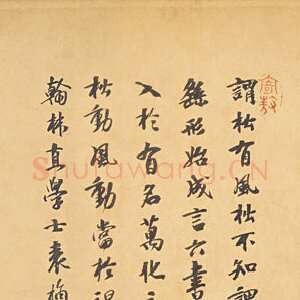 謂松有風松不知
繇形始成言六書
入於有名萬化
松動風動當於
翰林直學士袁桷
Shufawang.CN